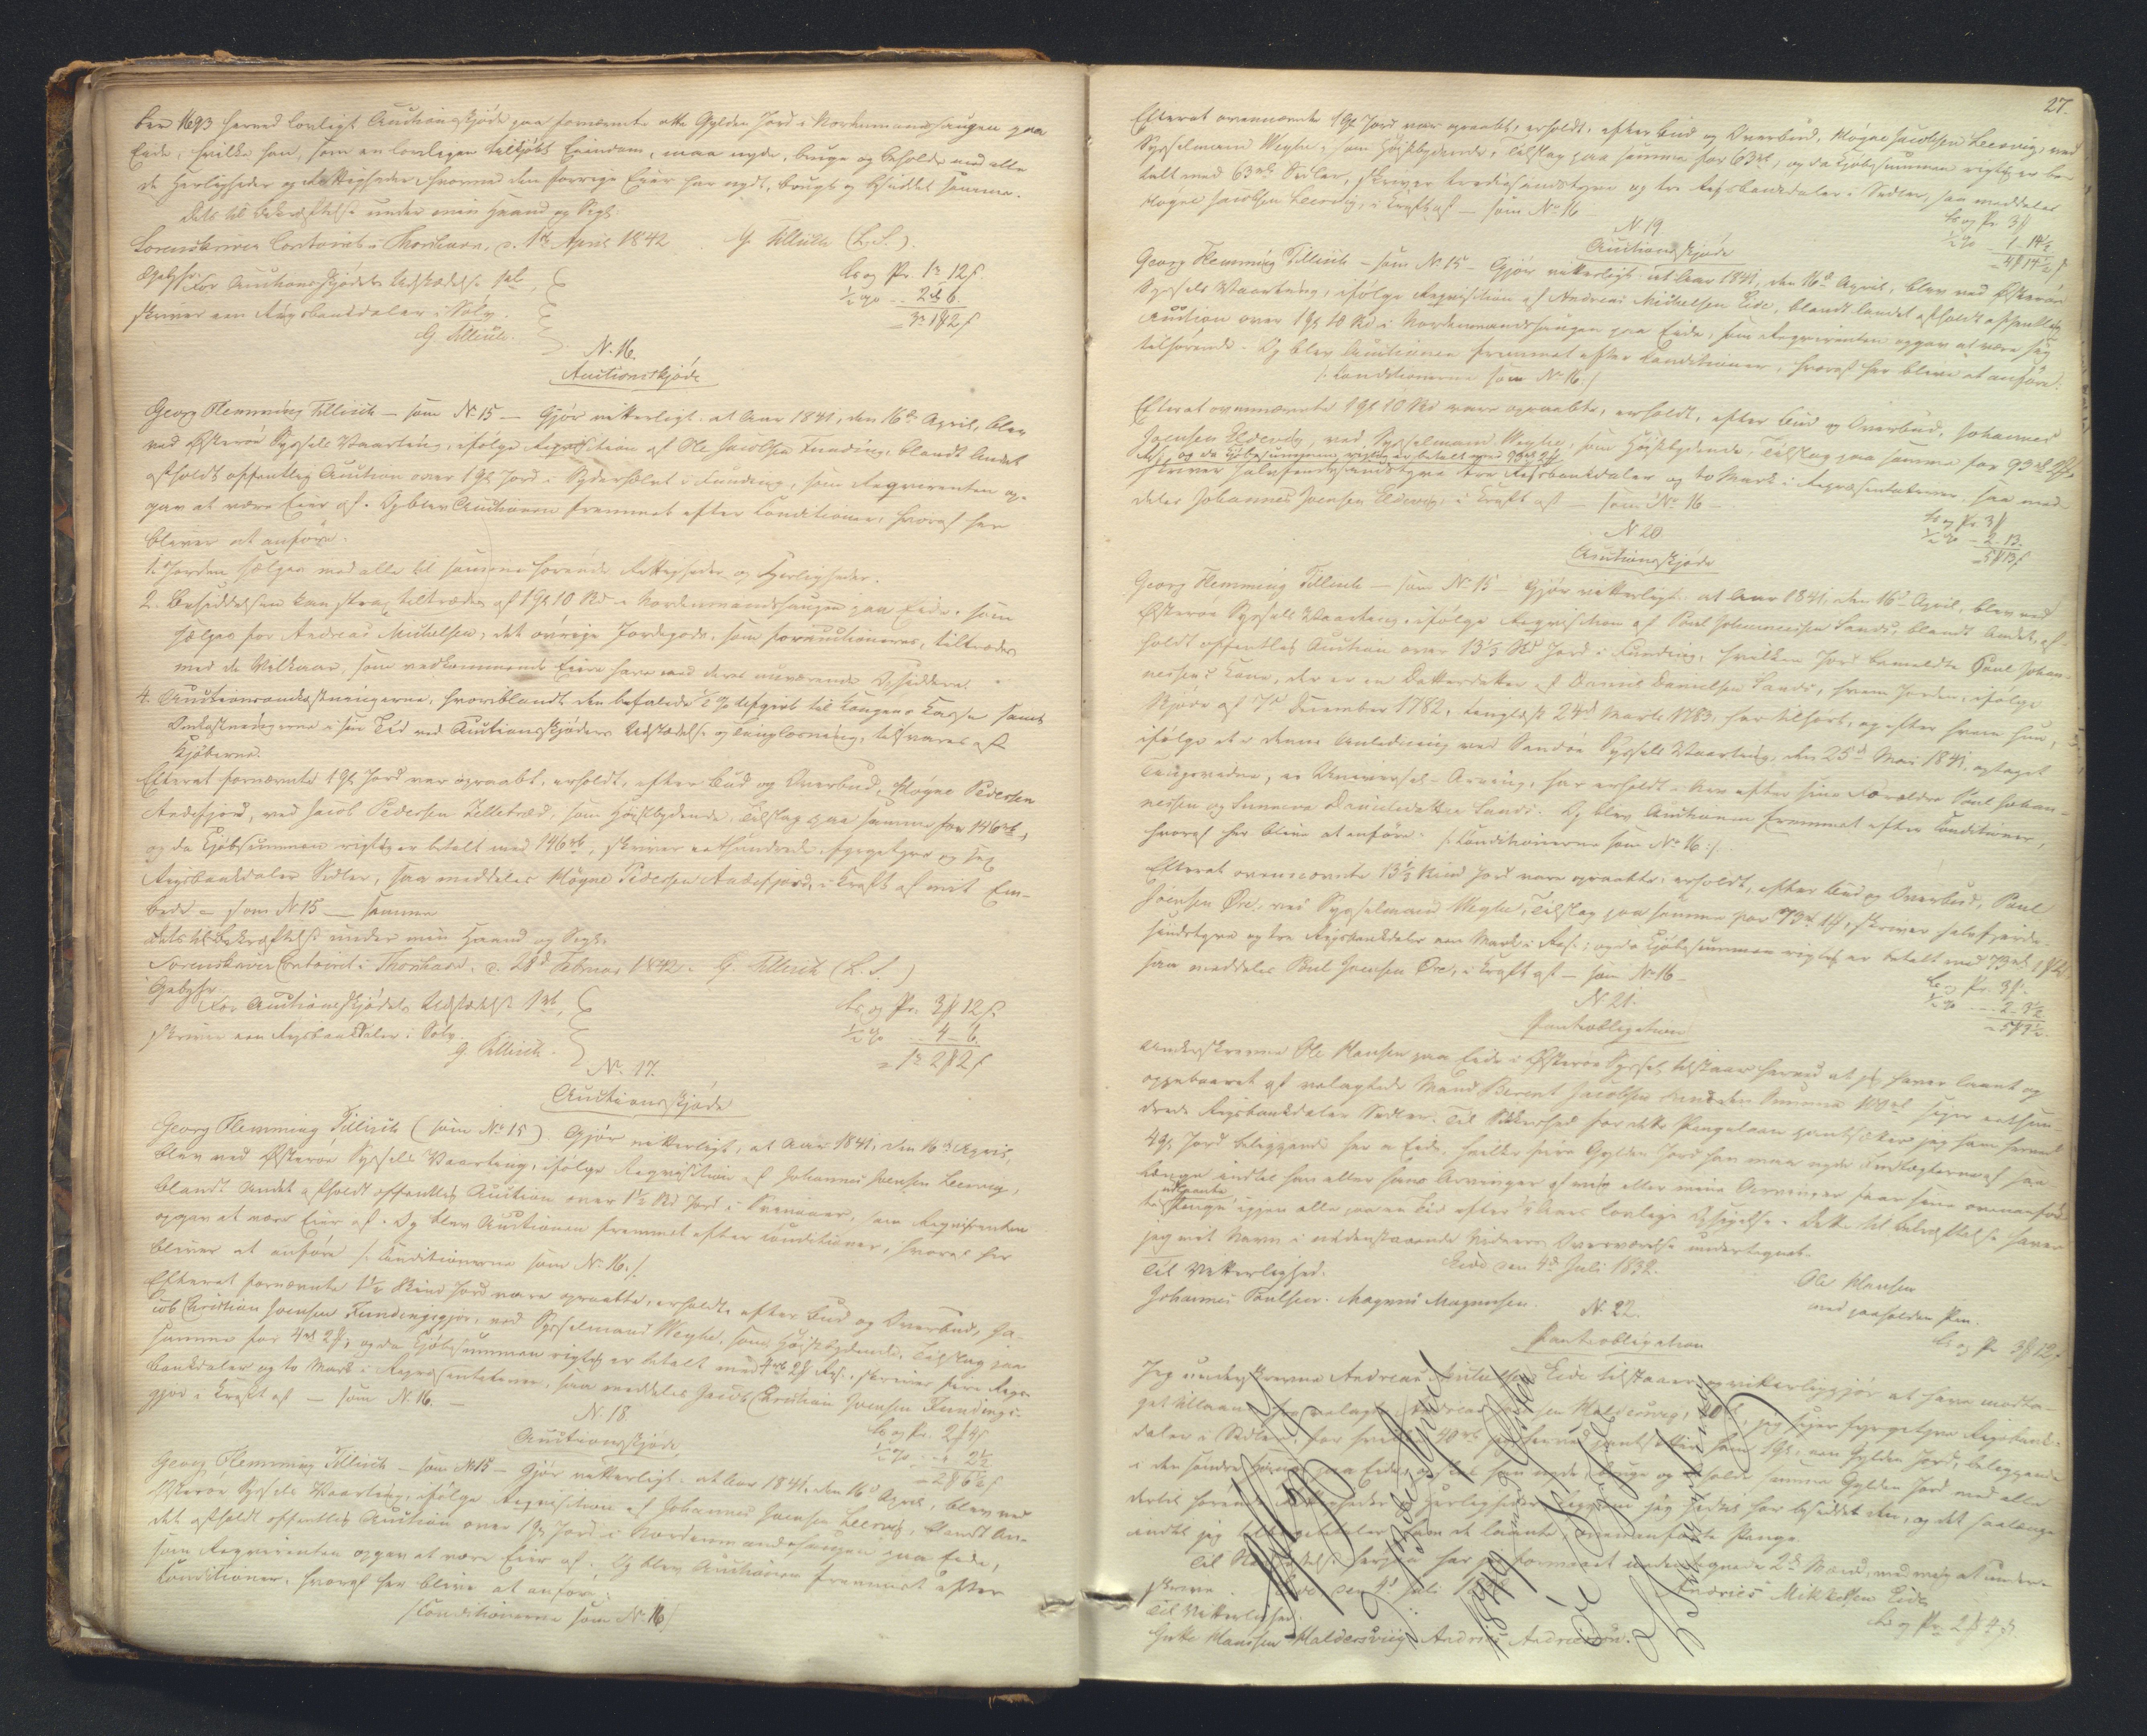 den 1693 herved lovligt Auctionsskjøde paa fornævnte otte Gylden Jord i Nordenmandshaugen paa
Eide, hvilke han, som en lovligen tilkjøbt Eiendom, maa nyde, bruge og beholde med alle
de Herligheder og Rettigheder hvormed den forrige Eier har nydt, brugt og besiddet samme.
Dets til Bekræftelse under min Haand og Segl.
Sorenskriver Contoiret i Thorshavn, d. 1ste April 1842. G. Tillisch (L.S.)
Gebyhr.
For Auctionsskjødets Udstædelse 1rd,
skriver een Rigsbankdaler i Sølv.
G Tillisch.
Ls og Pr. 1rd 12s.
½ % - 2 6.
= 3
N. 16.
Auctionsskjøde
Georg Flemming Tillisch - som No 15 - Gjør vitterligt: at Aar 1841, den 16de April, blev
ved Østerøe Syssels Vaarting, ifølge Reqvisition af Ole Jacobsen Funding, blandt Andet
afholdt offentlig Auction over 1 Gl Jord i Syderhælvt i Funding, som Reqvirenten op-
gav at være Eier af. Og blev Auctionen fremmet efter Conditioner, hvoraf her
bliver at anføre:
1. Jorden sælges med alle til samme hørende Rettigheder og Herligheder.
2. Besiddelsen kan strax tiltrædes af 1 Gl 10 Skd i Nordenmandshaugen paa Eide, som
sælges for Andreas Michelsen; det øvrige Jordegods, som forauctioneres, tiltrædes
med de Vilkaar, som vedkommende Eiere have med deres nuværende Besiddere.
4. Auctionsomkostningerne, hvoriblandt den befalede ½ % Afgivt til Kongens Kasse samt
Omkostningerne i sin Tid ved Auctionsskjøders Udstædelse og Tinglæsning, tilsvares af
Kjøberne.
Efterat fornævnte 1 Gl Jord var opraabt, erholdt, efter Bud og Overbud, Høgne Pedersen
Andefjord, ved Jacob Pedersen Selletræd, som Høistbydende, Tilslag paa samme for 146 rd,
og da Kjøbesummen rigtig er betalt med 146 rd, skriver eethundrede fyrgetyve og sex
Rigsbankdaler Sedler, saa meddeles Høgne Pedersen Andefjord, i Kraft af mit Em-
bede - som N 15 - samme
Dets til Bekræftelse under min Haand og Segl.
Sorenskriver Contoiret i Thorshavn, d. 28d Februar 1842. G. Tillisch (L.S.)
Gebyhr.
For Auctionsskjødets Udstædelse 1rd,
skriver een Rigsbankdaler i Sølv.
G. Tillisch.
Ls og Pr. 3 12s.
½ % 4 - 6.
= 1rd 2 2s
No 17.
Auctionsskjøde
Georg Flemming Tillisch (som No 15). Gjør vitterligt, at Aar 1841, den 16de April,
blev ved Østerøe Syssels Vaarting, ifølge Reqvisition af Johannes Joensen Leervig,
blandt Andet afholdt offentlig Auction over 1½ Skd Jord i Svinaaer, som Reqvirenten
opgav at være Eier af. Og blev Auctionen fremmet efter Conditioner, hvoraf her
bliver at anføre /: Conditionerne som No 16:/
Efterat fornævnte 1½ Skind Jord vare opraabte, erholdt, efter Bud og Overbud, Ja-
cob Christian Joensen Fundingsgjov, ved Sysselmand Weyhe, som Høistbydende, Tilslag paa
samme for 4rd 2, og da Kjøbesummen rigtig er betalt med 4rd 2 Rep., skriver fire Rigs-
bankdaler og to Mark i Repræsentativer, saa meddeles Jacob Christian Joensen Fundings-
gjov i Kraft af - som N 16. -
Ls og Pr. 2 4s
½ % 2½
= 2 6½s
N. 18.
Auctionsskjøde
Georg Flemming Tillisch - som No 15 - Gjør vitterligt, at Aar 1841, den 16d April, blev ved
Østerøe Syssels Vaarting, ifølge Reqvisition af Johannes Joensen Leervig, blandt An-
det afholdt offentlig Auction over 1 Gl Jord i Nordenmandshaugen paa Eide,
som Reqvirenten opgav at være Eier af. Og blev Auctionen fremmet efter
Conditioner, hvoraf her blive at anføre:
/: Conditionerne som No 16:/
27.
Efterat ovennævnte 1 Gl Jord var opraabt, erholdt, efter Bud og Overbud, Høgne Jacobsen Leervig, ved
Sysselmand Weyhe, som Høistbydende, Tilslag paa samme for 63 rd, og da Kjøbesummen rigtig er be-
talt med 63 rd Sedler, skriver tredesindstyve og tre Rigsbankdaler i Sedler, saa meddeles
Høgne Jacobsen Leervig, i Kraft af - som No 16
Ls og Pr 3
½ % - 1 - 14½
= 4 14½ s
N 19
Auctionsskjøde
Georg Flemming Tillisch - som No 15 - Gjør vitterligt: at Aar 1841, den 16d April, blev ved Østerøe
Syssels Vaarting, ifølge Reqvisition af Andreas Michelsen Eide, blandt Andet afholdt offentlig
Auction over 1 Gl 10 Skd i Nordenmandshaugen paa Eide, som Reqvirenten opgav at være sig
tilhørende. Og blev Auctionen fremmet efter Conditioner, hvoraf her blive at anføre:
/: Conditionerne som No 16:/
Efterat ovennævnte 1 Gl 10 Skd vare opraabte, erholdt, efter Bud og Overbud, Johannes
Joensen Eldevig, ved Sysselmand Weyhe, som Høistbydende, Tilslag paa samme for 93 rd 2
Rep., og da Kjøbesummen rigtig er betalt med 93 rd 2
skriver halvfemtesindstyve tre Rigsbankdaler og to Mark i Repræsentativer, saa med-
deles Johannes Joensen Eldevig, i Kraft af - som No 16 -
Ls og Pr 3
½ % - 2 - 13.
= 5 13s
N 20
Auctionsskjøde
Georg Flemming Tillisch - som No 15 - Gjør vitterligt: at Aar 1841, den 16d April, blev ved
Østerøe Syssels Vaarting, ifølge Reqvisition af Poul Johannesen Sands, blandt Andet, af-
holdt offentlig Auction over 13⅓ Skd Jord i Funding, hvilken Jord bemeldte Poul Johan-
nesens Kone, der er en Datterdatter af Daniel Danielsen Sands, hvem Jorden, ifølge
Skjøde af 7d December 1782, tinglæst 24d Marts 1783, har tilhørt, og efter hvem hun,
ifølge et i denne Anledning ved Sandøe Syssels Vaarting, den 25d Mai 1841, optaget
Tingsvidne, er Universel-Arving, har erholdt i Arv efter sine Forældre Poul Johan-
nessen og Sunneva Danielsdatter Sands. Og blev Auctionen fremmet efter Conditioner,
hvoraf her blive at anføre: /: Conditionerne som No 16:/
Efterat ovennævnte 13⅓ Skind Jord vare opraabte, erholdt, efter Bud og Overbud, Poul
Joensen Øre, ved Sysselmand Weyhe, Tilslag paa samme for 73 rd 1, skriver halvfjerde-
sindstyve og tre Rigsbankdaler een Mark i Rep.; og da Kjøbesummen rigtig er betalt med 73 rd 1
saa meddeles Poul Joensen Øre, i Kraft af - som No 16 -
Ls og Pr. 3.
½ % - 2 - 3½
= 5 3½.
N. 21.
Pantobligation
Underskrevne Ole Hansen paa Eide i Østerøe Syssel, tilstaaer herved at jeg haver laant og
oppebaaret af velagtede Mand Berent Jacobsen Sund den Summa 100 rd siger eethun-
drede Rigsbankdaler Sedler. Til Sikkerhed for dette Pengelaan pantsætter jeg ham herved
4 Gl Jord beliggende her i Eide, hvilke fire Gylden Jord han maa nyde Indtægterne af saa
længe indtil han eller hans Arvinger af mig eller mine Arvinger faar sine ovenanfør-
te udlaante Penge igjen alle paa en Tid efter Aars lovlige Opsigelse. Dette til Bekræftelse haver
jeg mit Navn i nedenstaaende Vidners Overværelse undertegnet.
Eide den 4de Juli 1832.
Til Vitterlighed.
Johannes Poulsen. Magnus Magnusen
Ole Hansen
med paaholden Pen.
Ls og Pr 3 12s
N. 22.
Pantobligation
Jeg underskrevne Andreas Michelsen Eide tilstaaer og vitterliggjør at have modta-
get tillaans velagte Haldersvig, 40, jeg siger fyrgetyve Rigsbank-
daler i Sedler, for hvilke 40 rd jeg herved pantsætter ham 1 Gl, een Gylden Jord, beliggende
i den søndre paa Eide, og kan han nyde, bruge og beholde samme Gylden Jord med alle
dertil hørende Rettigheder og Herligheder ligesom jeg hidtil har besiddet den, og det saalænge
indtil jeg tilbagebetaler ham de laante ovenanførte Penge.
Til Bekræftelse herpaa har jeg formaaet undertegnede 2de Mænd, med mig at under-
skrive. Eide den 4d Juli
Andrias Mikkelsen Eide
Til Vitterlighed.
Gutte Hansen Haldersviig Andrias Andreasen.
Ls og Pr 2 4s
1849